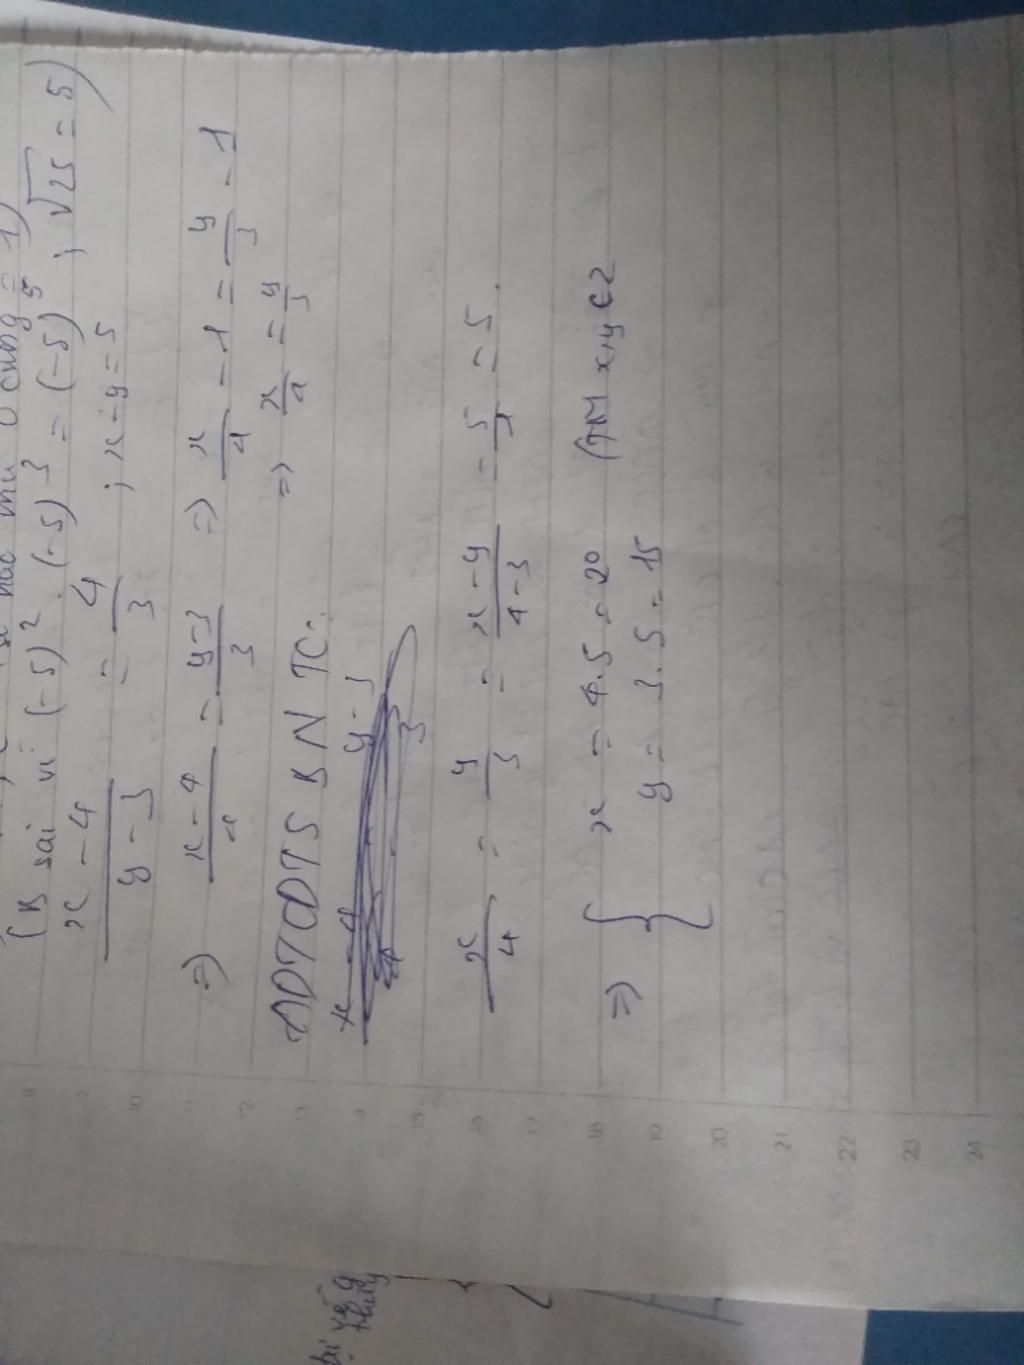 (B sai vì (-5)². (-5)³ = (-5) ; √25 = 5)
x - 4 / y - 3 = 4 / 3 ; x - y = 5
=> x - 4 / 4 = y - 3 / 3 => x / 4 - 1 = y / 3 - 1
=> x / 4 = y / 3
ADTCDTSBNTC:
x / 4 = y / 3 = x - y / 4 - 3 = 5 / 1 = 5.
=> { x = 4.5 = 20 (TM x,y ∈ Z
y = 3.5 = 15
9
10
11
12
13
15
16
17
18
19
20
21
22
23
24